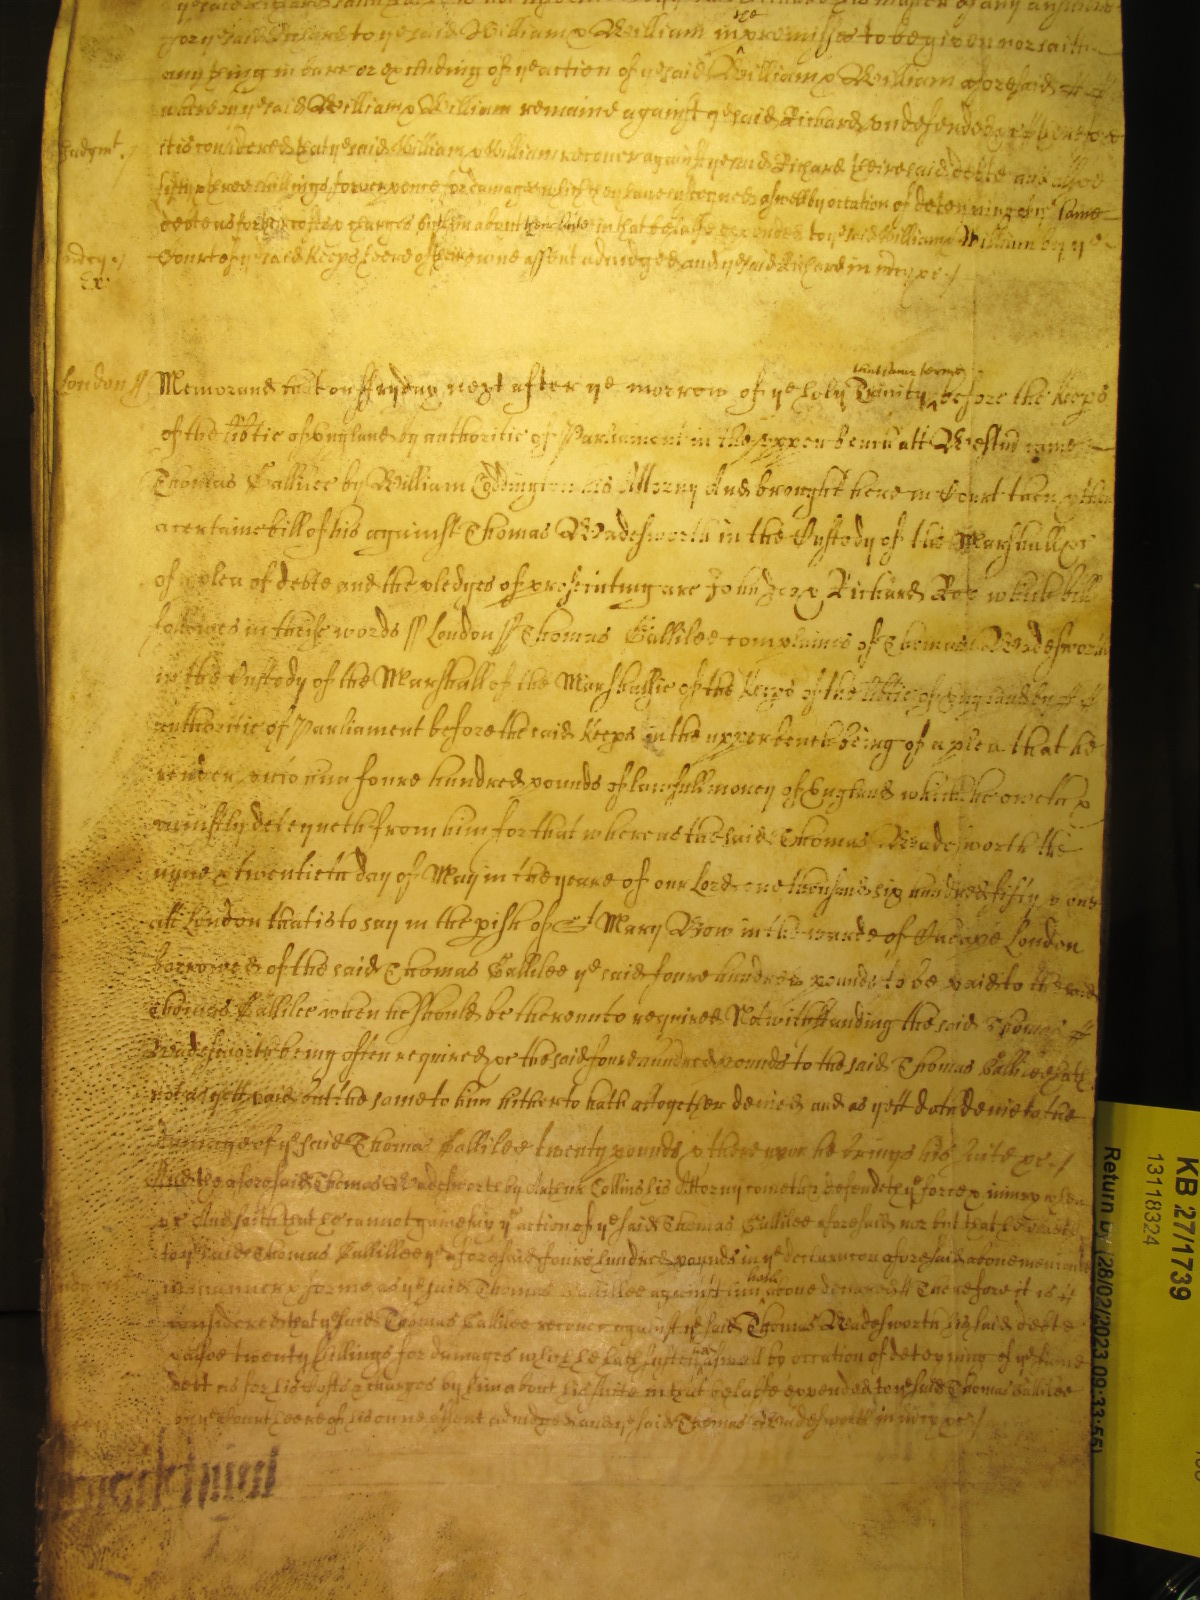 for ye said Richard to ye said William & William in ye premisses to be given nor saith
any thing in barr or precluding of ye action of ye said William & William aforesaid
wherby ye said William & William remaine against ye said Richard undefended &c Therefore
Judgmt. / it is considered that ye said William & William recover against ye said Richard their said debte and alsoe
fifty & three shillings fower pence for damages which they have susteyned aswell by occation of deteyning of ye same
debte as for their costs & charges by them about their suite in that behalfe expended to ye said William & William by ye
mcy. / Court of ye said Keeps heere of their owne assent adiudged and ye said Richard in mcy &c /
London ss Memorand that on ffryday next after ye morrow of ye holy Trinity this same terme before the Keeps
of the libtie of England by authoritie of Parliament in the upper bench att Westm came
Thomas Gallilee by William Coddington his Attorny And brought here in Court then & there
a certaine bill of his against Thomas Wadesworth in the Custody of the Marshall &c
of a plea of debte and the pledges of prosecuting are John Doe & Richard Roe which bill
followes in theise words ss London ss Thomas Gallilee complaines of Thomas Wadesworth
in the Custody of the Marshall of the Marshallsie of the Keeps of the libtie of England by
authoritie of Parliament before the said Keeps in the upper bench being of a plea that he
render unto him foure hundred pounds of lawfull money of England which he oweth &
uniustly deteyneth from him for that whereas the said Thomas Wadesworth the
nyne & twentieth day of May in the yeare of our Lord one thousand six hundred fifty & one
att London that is to say in the pish of St Mary Bow in the warde of Cheape London
borrowed of the said Thomas Gallilee ye said foure hundred pounds to be paid to the said
Thomas Gallilee when he should be thereunto required Notwithstanding the said Thomas
Wadesworth being often required &c the said foure hundred pounds to the said Thomas Gallilee hath
not as yett paid but the same to him hitherto hath altogether denied and as yett doth denie to the
damage of ye said Thomas Gallilee twenty pounds & thereupon he brings his suite &c /
And the aforesaid Thomas Wadesworth by Arthur Collins his Attorny cometh & defendeth ye force & iniury when
&c And saith that he cannot gainesay ye action of ye said Thomas Gallilee aforesaid nor but that he oweth
to ye said Thomas Gallillee ye aforesaid foure hundred pounds in ye declaracon aforesaid above menconed
in manner & forme as ye said Thomas Gallilee against him hath above declared Therefore it is
considered that ye said Thomas Gallilee recover against ye said Thomas Wadesworth his said debte
& alsoe twenty shillings for damages which he hath susteined aswell by occation of deteyning of ye same
dett as for his costs & charges by him about his suite in that behalfe expended to ye said Thomas Gallilee
by ye Court heere of his owne assent adiudged and ye said Thomas Wadesworth in mcy &c /
KB 27/1739
13118324
Return by (28/02/2023 09:33:55)